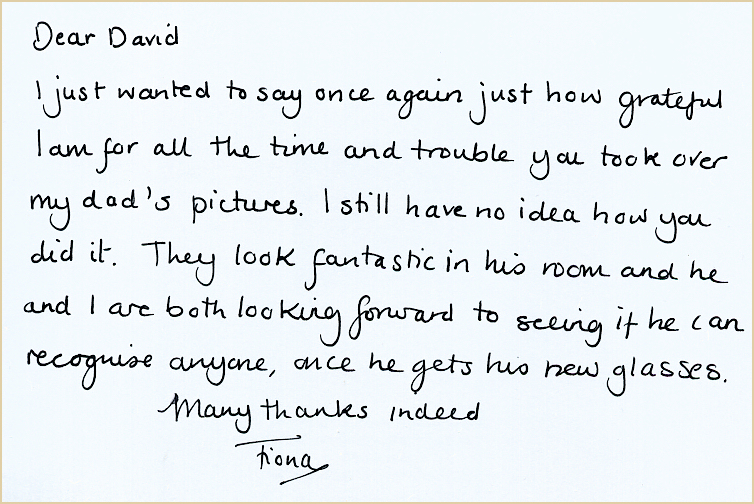 Dear David
I just wanted to say once again just how grateful
I am for all the time and trouble you took over
my dad's pictures. I still have no idea how you
did it. They look fantastic in his room and he
and I are both looking forward to seeing if he can
recognise anyone, once he gets his new glasses.
Many thanks indeed
Fiona